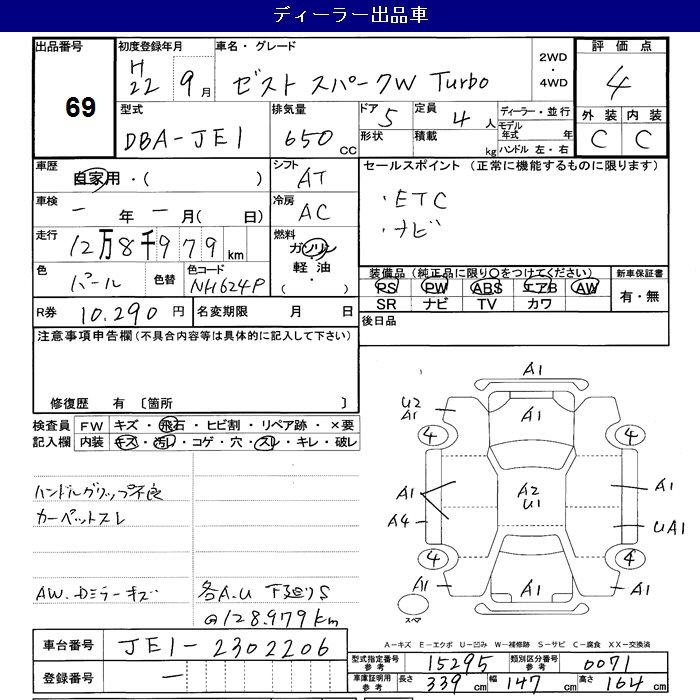 ディーラー出品車
出品番号 69
初度登録年月 H22 9月
車名・グレード ゼスト スパークW Turbo
2WD・4WD
評価点 4
外装 内装
C C
型式 DBA-JE1
排気量 650 CC
ドア 5
形状
定員 4人
積載 kg
ディーラー・並行
モデル年式 年
ハンドル 左・右
車歴 自家用・( )
シフト AT
セールスポイント (正常に機能するものに限ります)
・ETC
・ナビ
車検 - 年 - 月( 日)
冷房 AC
走行 12万8千979km
燃料 ガソリン
軽油
( ・ )
色 パール
色替
色コード NH624P
装備品 (純正品に限り○をつけてください)
PS PW ABS エアB AW
SR ナビ TV カワ
新車保証書
有・無
R券 10,290円
名変期限 月 日
後日品
注意事項申告欄(不具合内容等は具体的に記入して下さい)
修復歴 有 〔箇所 〕
検査員記入欄
FW キズ・飛石・ヒビ割・リペア跡・×要
内装 キズ・汚れ・コゲ・穴・スレ・キレ・破レ
ハンドルグリップ不良
カーペットスレ
AW.Dミラーキズ
各A.U 下廻りS
@128.979km
A1
U2
A1
A1
4
4
A1
A4
A2
U1
A1
UA1
4
4
A1
A1
A1
A1
スペア
A=キズ E=エクボ U=凹み W=補修跡 S=サビ C=腐食 XX=交換済
車台番号 JE1-2302206
登録番号 -
型式指定番号参考 15295
類別区分番号参考 0071
車庫証明用参考 長さ 339cm 幅 147cm 高さ 164cm